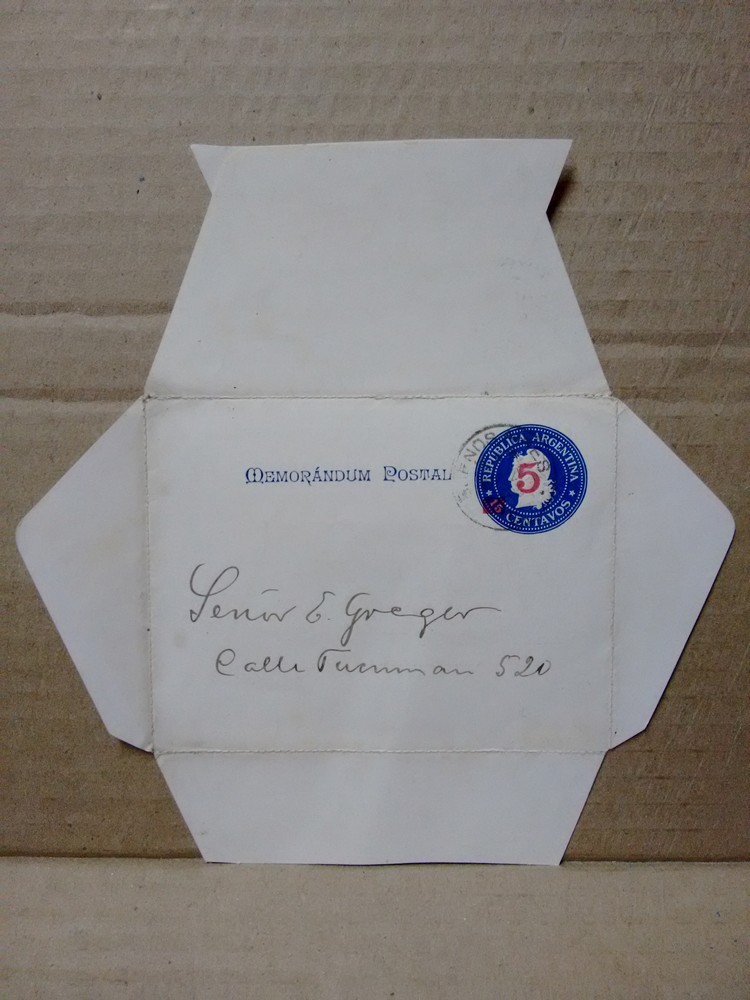 MEMORÁNDUM POSTAL
REPUBLICA ARGENTINA
5
15
CENTAVOS
Señor E. Greger
Calle Tucuman 520